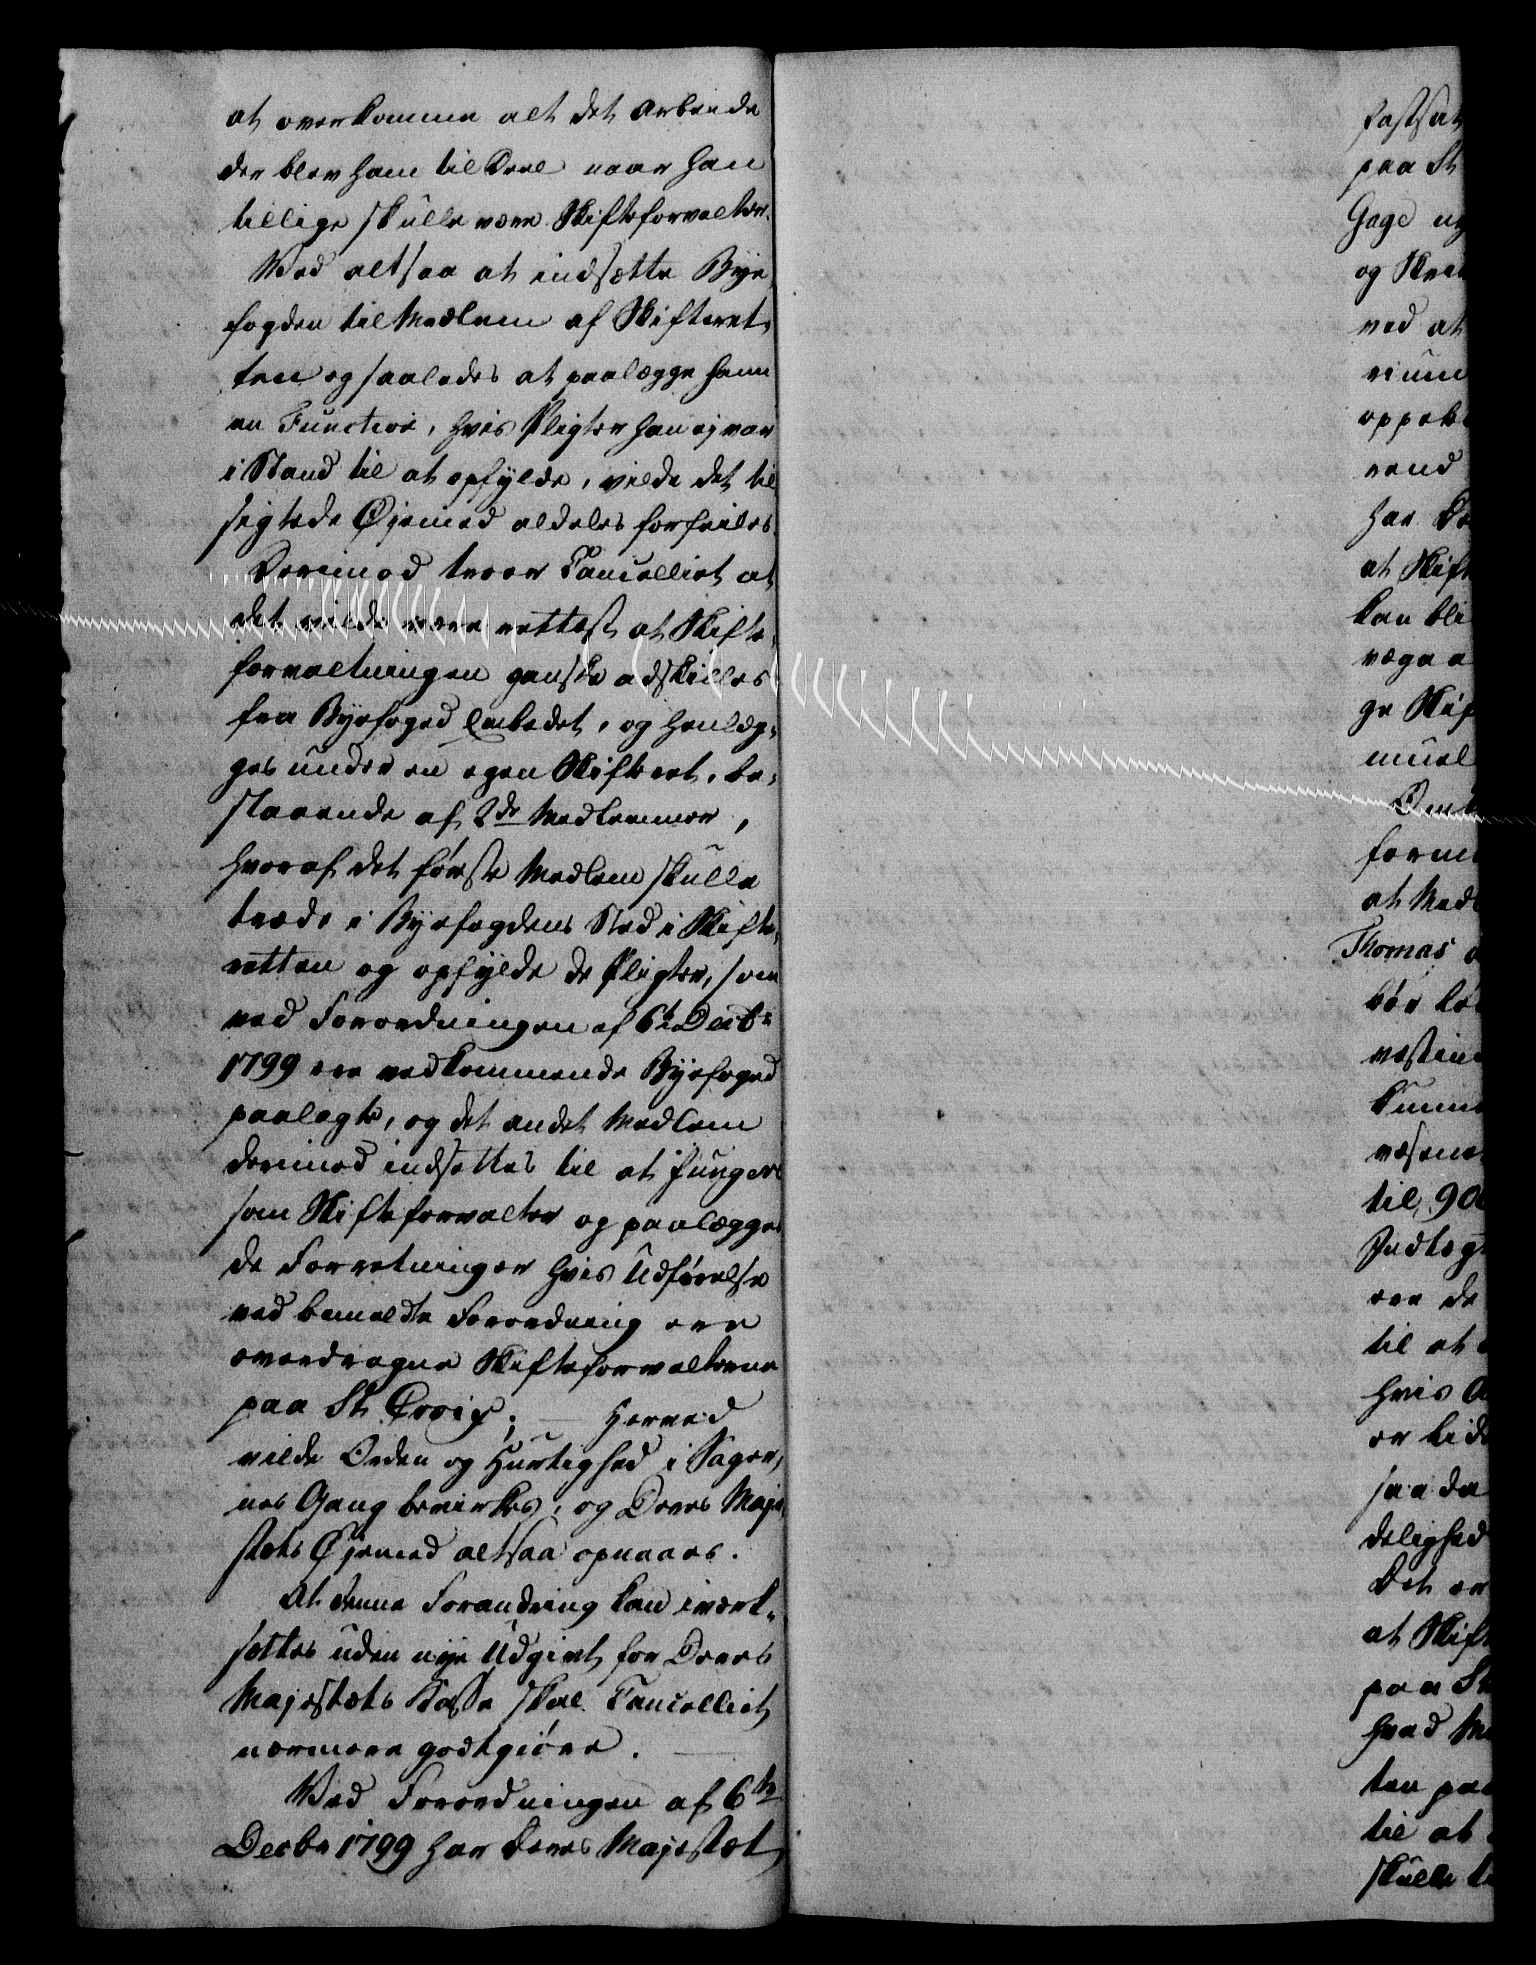 at overkomme alt det Arbeide
der blev ham til Deel naar han
tillige skulle være Skifteforvalter.
Ved altsaa at indsætte Bye,
fogden til Medlem af Skifteret,
ten og saaledes at paalægge ham
en Function, hvis Pligter han ej var
i Stand til at opfylde, vilde det til
sigtede Øjemed aldeles forfeiles.
Derimod troer Cancelliet at
det vilde være rettest at Skifte,
forvaltningen ganske adskilles
fra Byefoged Embedet, og henlæg,
ges under en egen Skifteret, be,
staaende af 2de Medlemmer,
hvoraf det første Medlem skulle
træde i Byefogdens Sted i Skifte,
retten og opfylde de Pligter, som
ved Forordningen af 6te Decbr
1799 ere vedkommende Byefoged
paalagte, og det andet Medlem
derimod indsættes til at fungere
som Skifteforvalter og paalægges
de Forretninger hvis Udførelse
ved bemeldte Forordning ere
overdragne Skifteforvalterne
paa St Croix; — Herved
vilde Orden og Hurtighed i Sager,
nes Gang bevirkes, og Deres Maje,
stæts Øjemed altsaa opnaaes.
At denne Forandring kan iværk,
sættes uden nye Udgivt for Deres
Majestæts Kasse skal Cancelliet
nærmere godtgiøre. —
Ved Forordningen af 6te
Decbr 1799 har Deres Majestæt
fastsat
paa St
Gage
og
ved at
har
at Skift
kan bli
ge
at Medl
Thomas
bør
til 900
Indtægt
ere de
til at
hvis
er
saa
delighed
Det er
at Skift
paa St
hvad
ten paa
til at
skulle